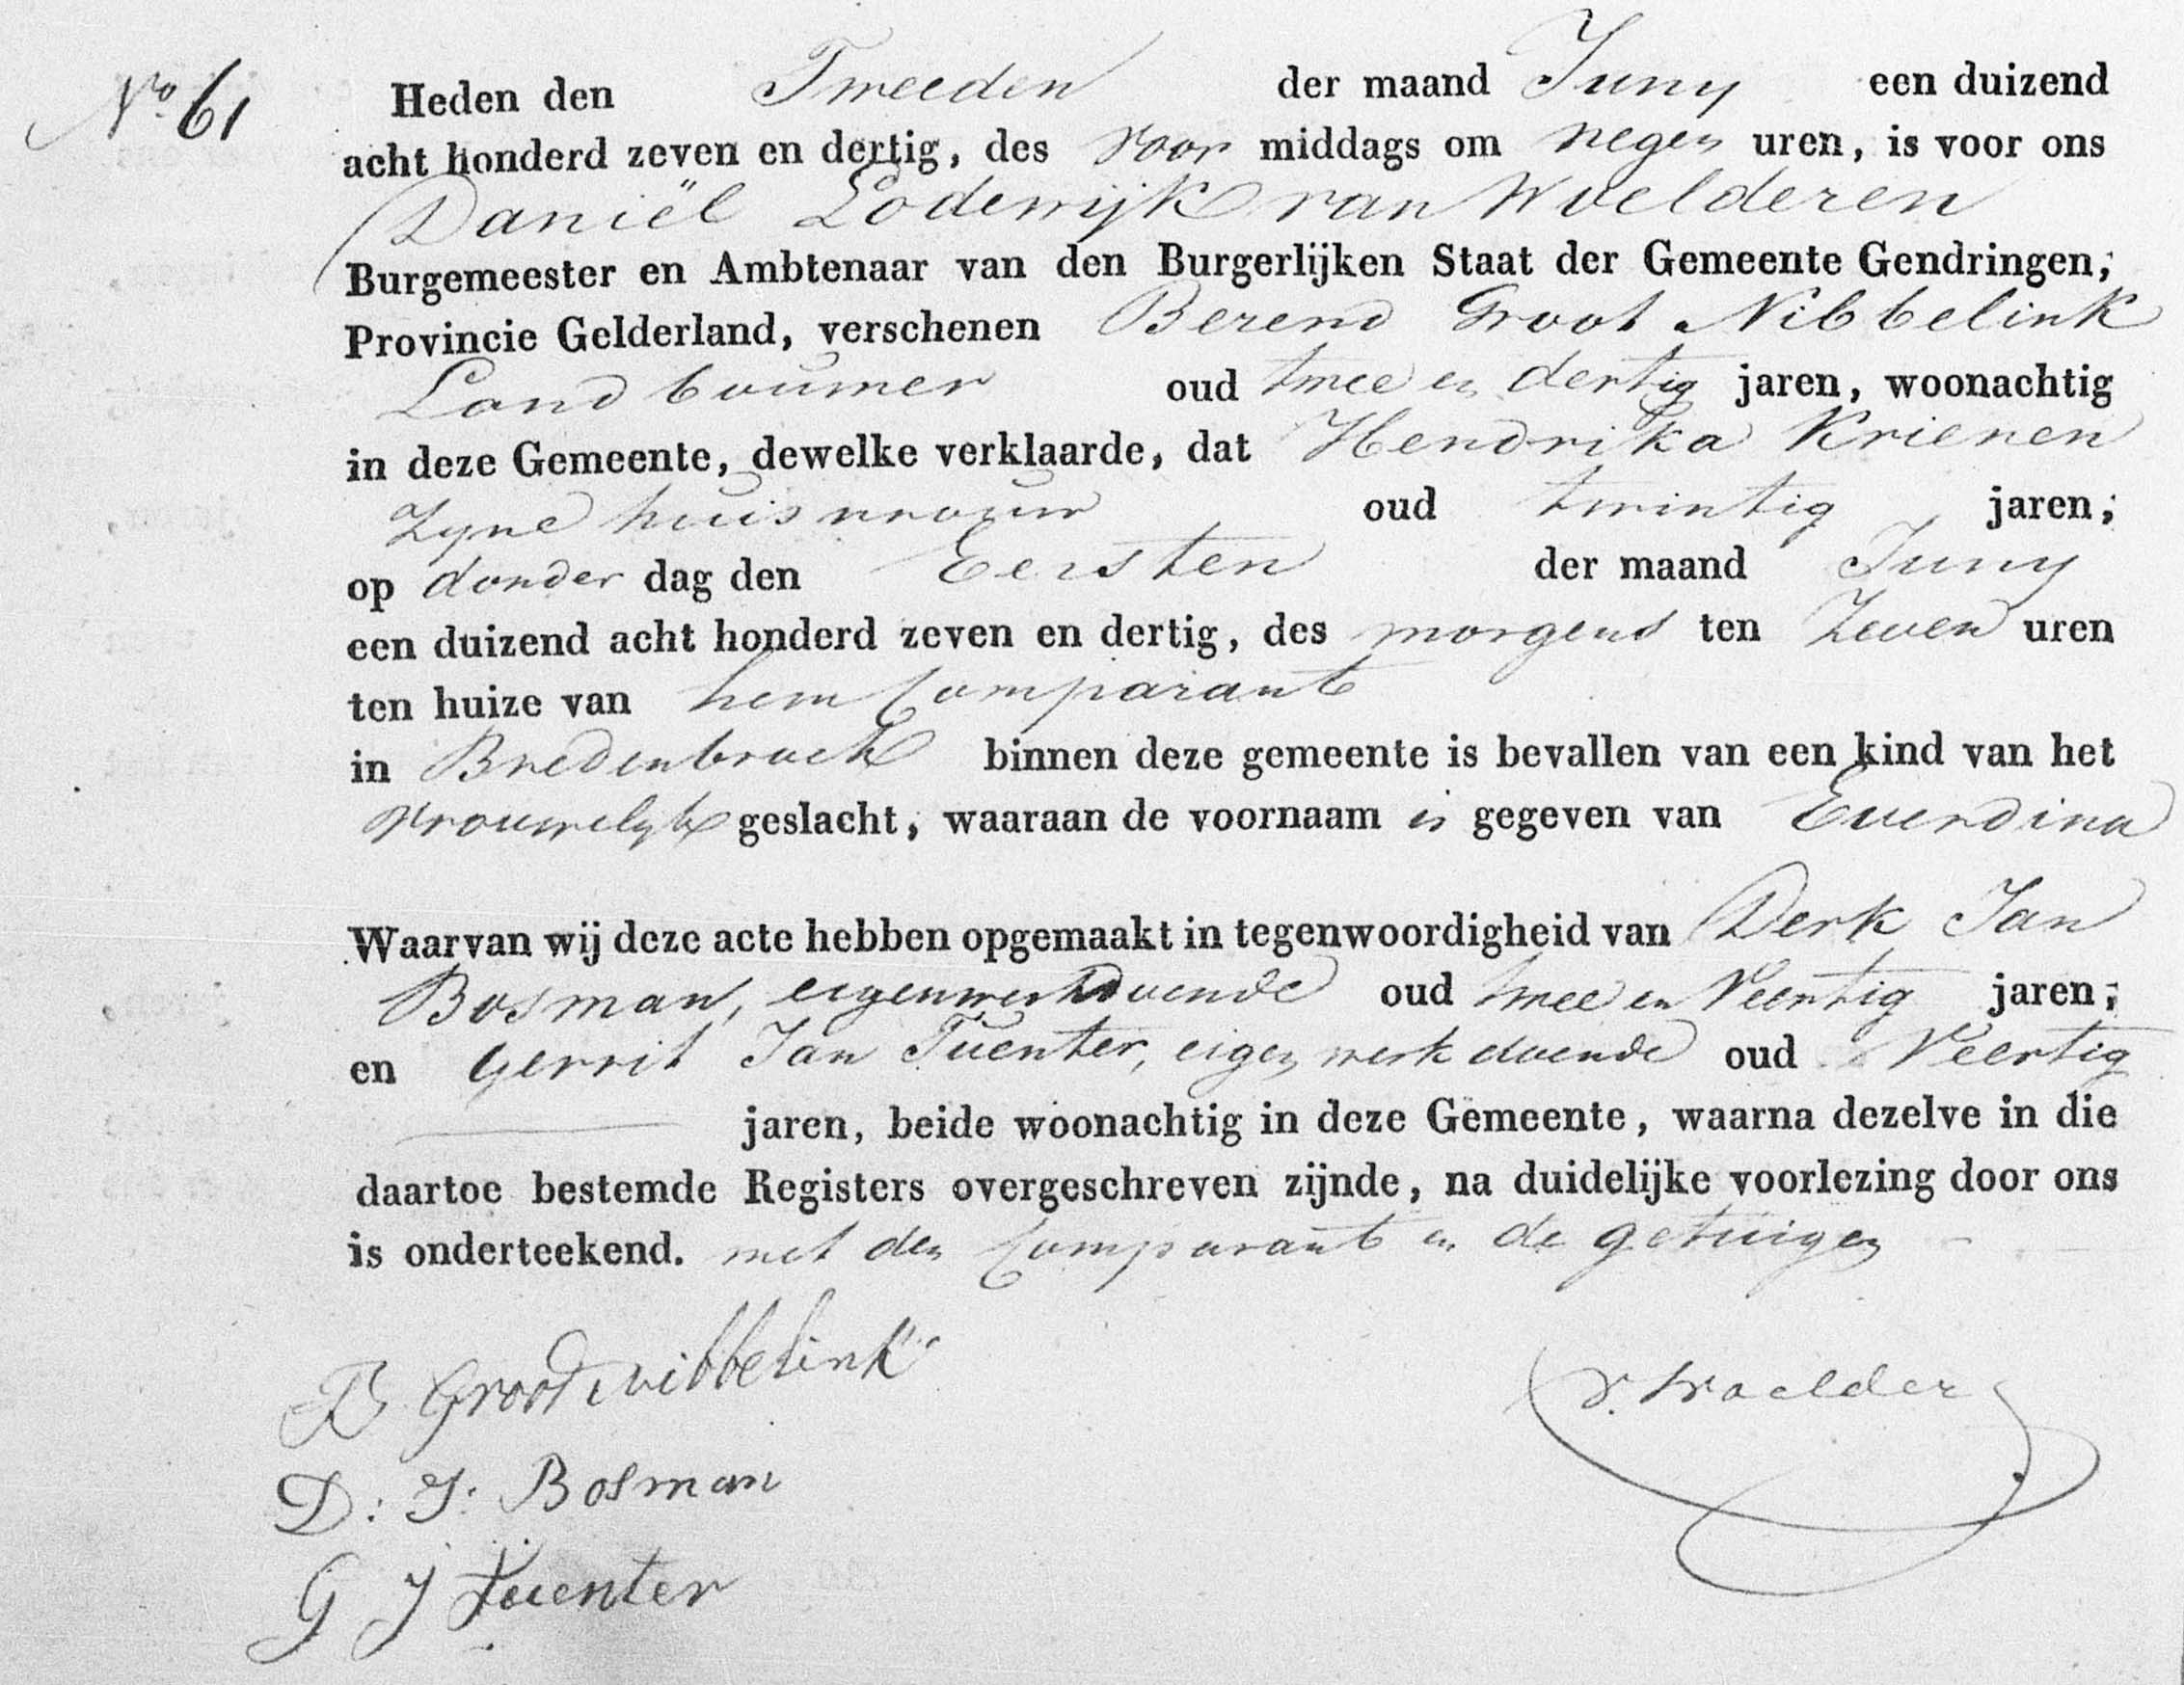 No 61
Heden den Tweeden der maand Juny een duizend
acht honderd zeven en dertig, des voor middags om negen uren, is voor ons
Daniël Lodewijk van Woelderen
Burgemeester en Ambtenaar van den Burgerlijken Staat der Gemeente Gendringen,
Provincie Gelderland, verschenen Berend Groot Nibbelink
Landbouwer oud twee en dertig jaren, woonachtig
in deze Gemeente, dewelke verklaarde, dat Hendrika Krienen
Zyne huisvrouw oud twintig jaren,
op donder dag den Eersten der maand Juny
een duizend acht honderd zeven en dertig, des morgens ten Zeven uren
ten huize van hem Comparant
in Bredenbroek binnen deze gemeente is bevallen van een kind van het
vrouwelyk geslacht, waaraan de voornaam is gegeven van Everdina
Waarvan wij deze acte hebben opgemaakt in tegenwoordigheid van Derk Jan
Bosman, eigenwerkdoende oud twee en Veertig jaren,
en Gerrit Jan Tuenter, eigen werk doende oud Veertig
jaren, beide woonachtig in deze Gemeente, waarna dezelve in die
daartoe bestemde Registers overgeschreven zijnde, na duidelijke voorlezing door ons
is onderteekend. met den Comparant en de getuigen
B Groot Nibbelink
v. Woelderen
D: J: Bosman
G J Tuenter